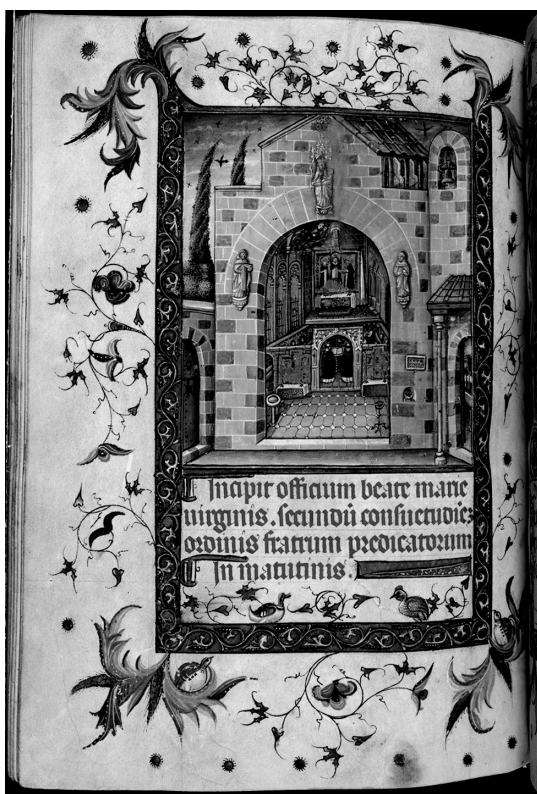 ¶ Incipit officium beate marie
uirginis. secundū consuetudīēꝫ
ordinis fratrum predicatorum
¶ In matutinis.